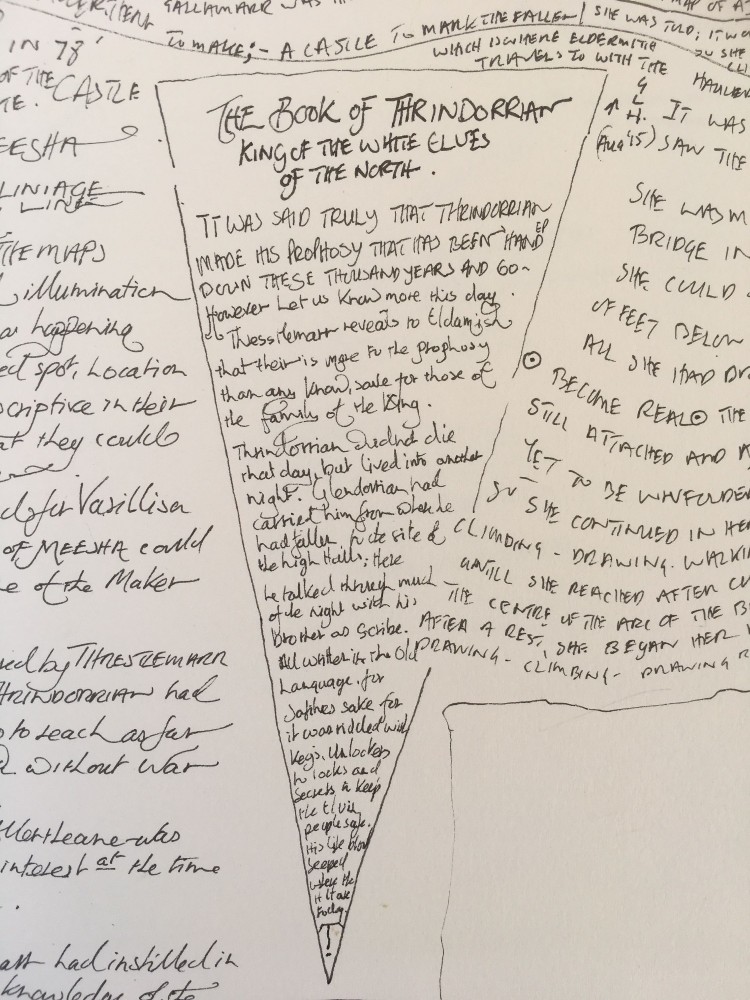 GALLAMARR WAS
TO MAKE; - A CASTLE TO MARK THE FALLEN
WHICH IS WHERE ELDERMITH
TRAVELS TO WITH THE
SHE WAS TOLD; IT WO
MAP OF A
IN 78'
OF THE
CASTLE
EESHA
LINIAGE
LINE
THE MAPS
illumination
happening
spot, Location
scriptive in their
at they could
for Vasillisa
OF MEESHA could
e of the Maker
ed by THRESTLEMARR
THRINDORRIAN had
to reach as far
without War
was
interest at the time
had instilled in
knowledge of the
THE BOOK OF THRINDORRIAN
KING OF THE WHITE ELVES
OF THE NORTH.
IT WAS SAID TRULY THAT THRINDORRIAN
MADE HIS PROPHOSY THAT HAS BEEN HAND ED
DOWN THESE THOUSAND YEARS AND GO~
However Let us Know more this day.
Thresstlemarr reveals to Eldamish
that their is more to the prophosy
than any know, save for those of
the family of the King.
Thrindorrian didnt die
that day, but lived into another
night. Glendorrian had
carried him from where he
had fallen to the site of
the high Halls; Here
he talked through much
of the night with his
Brother as Scribe.
All written in the Old
Language, for
Safthes sake for
it was riddled with
Keys, Unlockers
to locks and
Secrets to Keep
the Elvin
people safe.
His life blood
seeped
where the
today.
!
4
L
H.
(Aug '15)
IT WAS
SAW THE
SHE WAS M
BRIDGE IN
SHE COULD
OF FEET BELOW
ALL SHE HAD DR
BECOME REAL THE
STILL ATTACHED AND
YET TO BE UNFOLDED
SHE CONTINUED IN HER
CLIMBING - DRAWING. WALKIN
UNTILL SHE REACHED AFTER
THE CENTRE OF THE ARC OF THE B
AFTER A REST, SHE BEGAN HER
DRAWING - CLIMBING - DRAWING